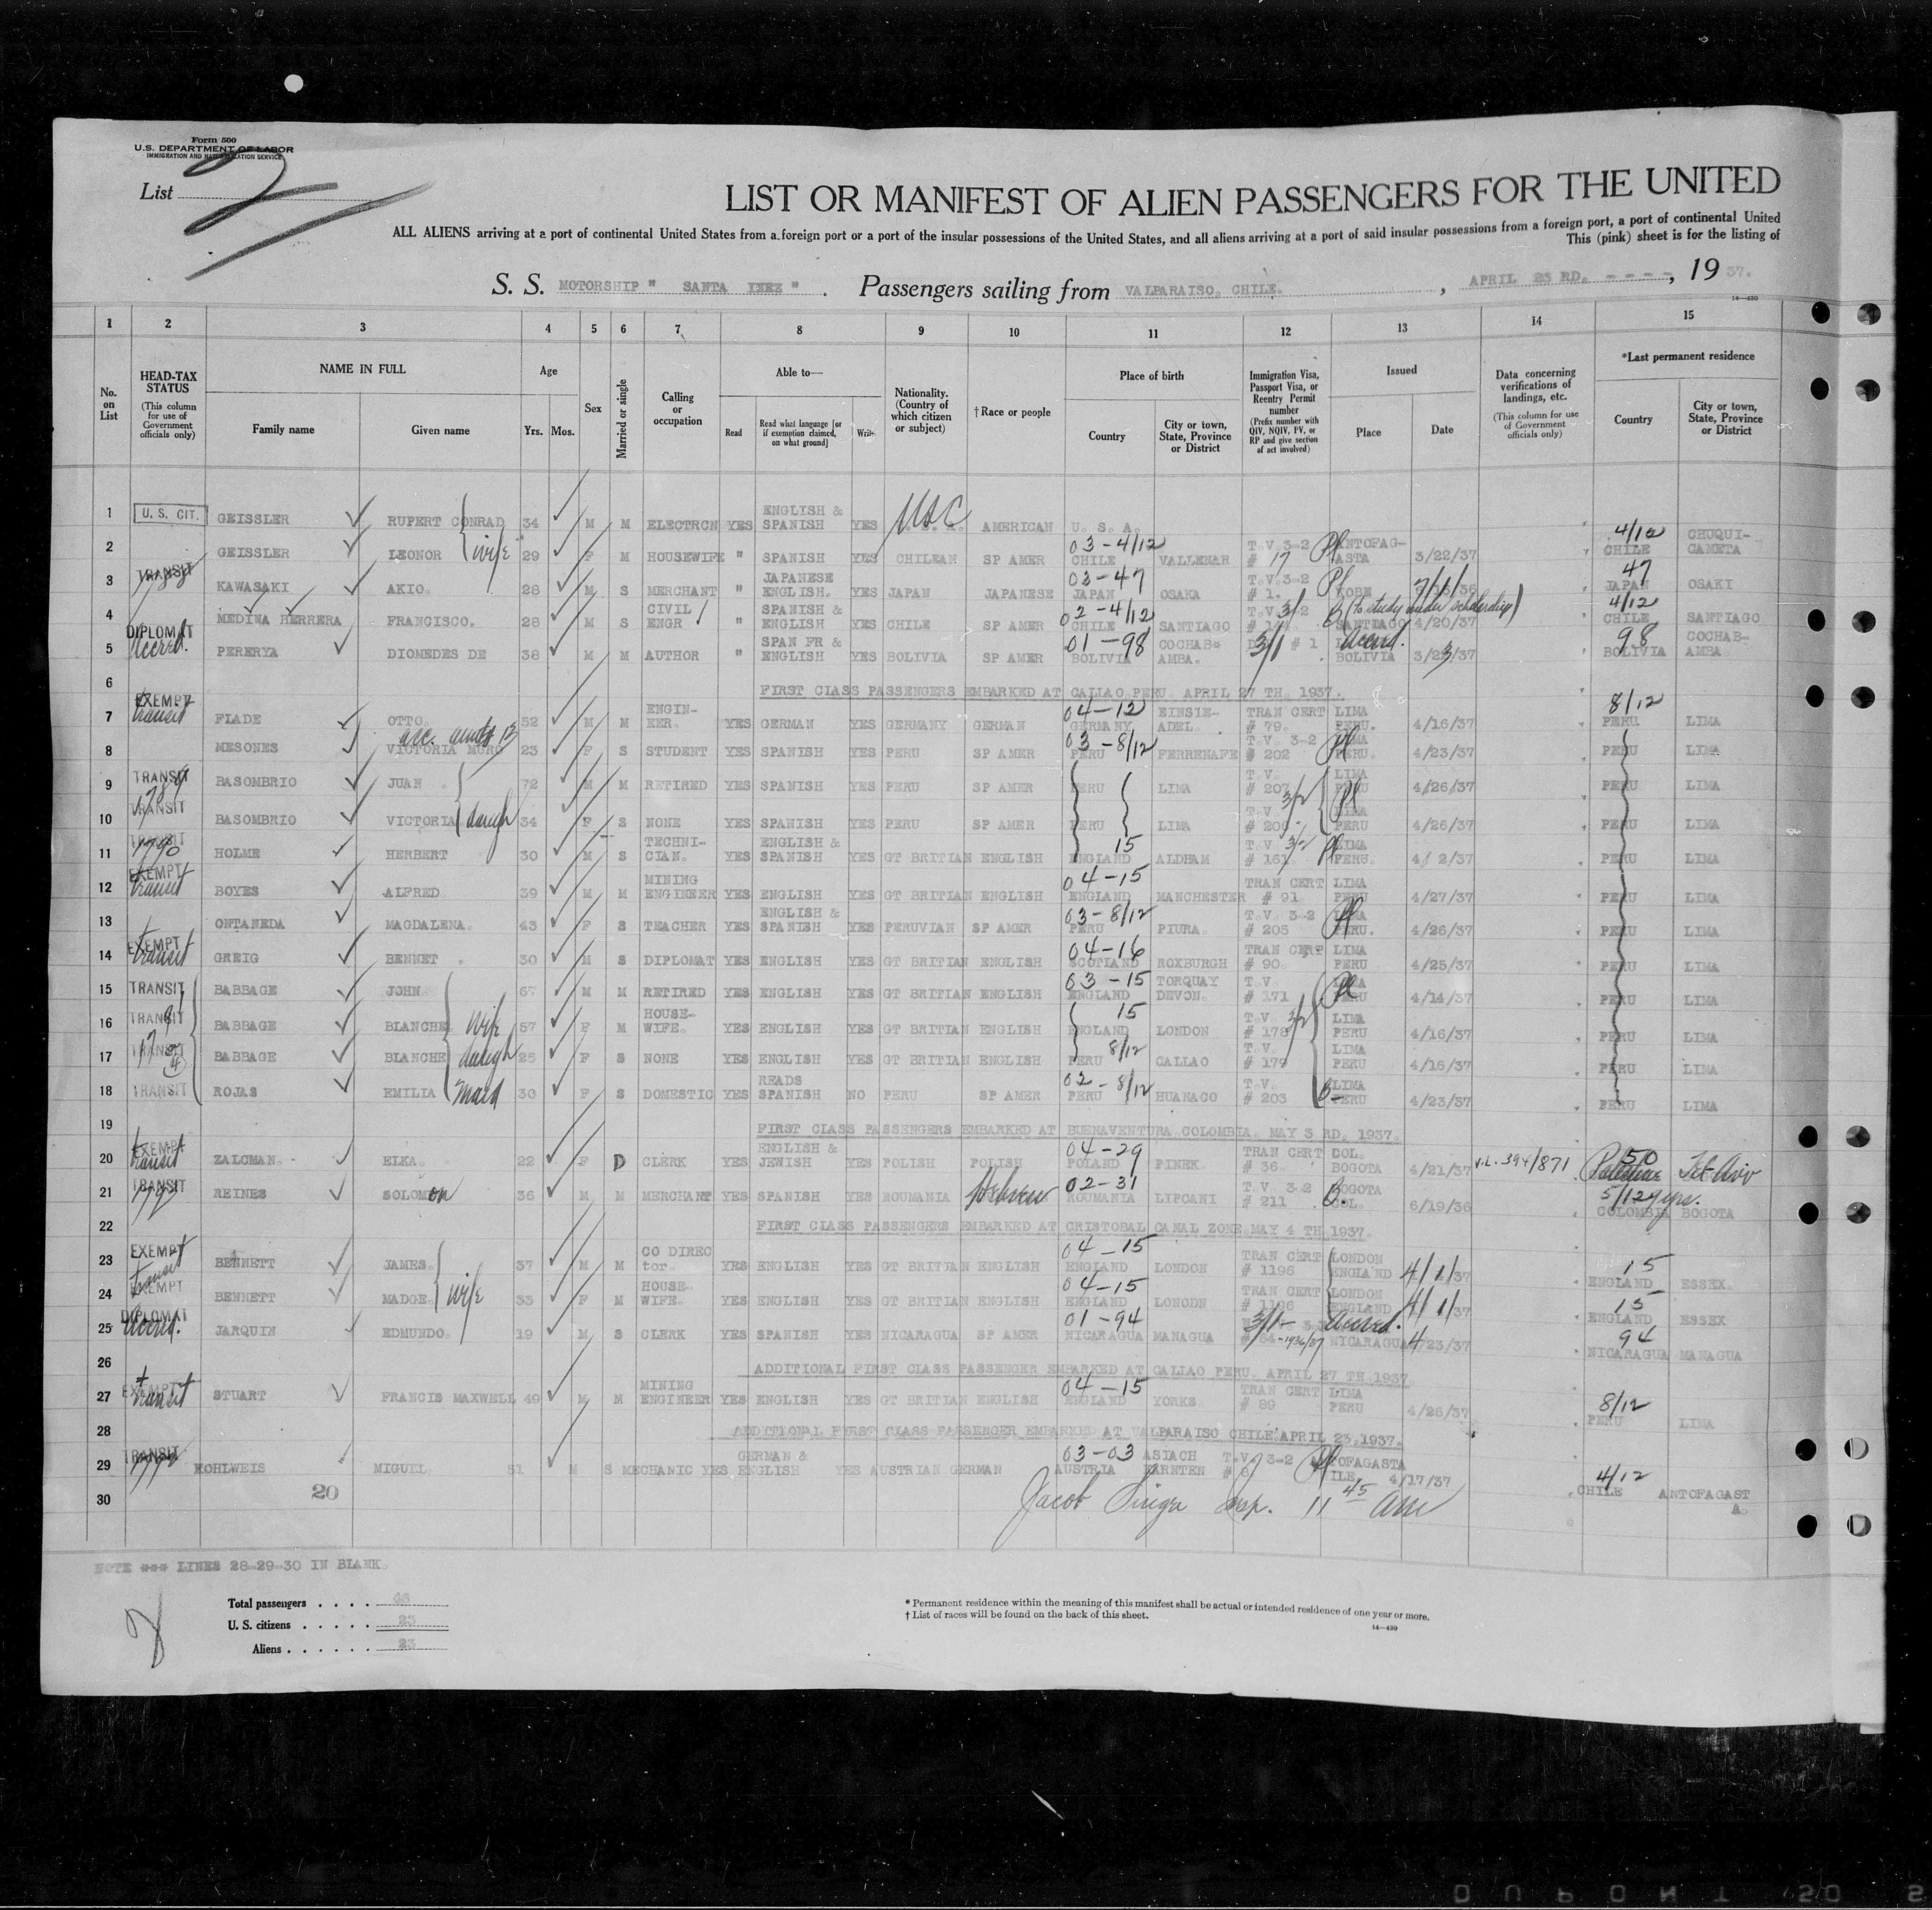 Form 500
U.S. DEPARTMENT OF LABOR
IMMIGRATION AND NATURALIZATION SERVICE
List 2
LIST OR MANIFEST OF ALIEN PASSENGERS FOR THE UNITED
ALL ALIENS arriving at a port of continental United States from a foreign port or a port of the insular possessions of the United States, and all aliens arriving at a port of said insular possessions from a foreign port, a port of continental United
This (pink) sheet is for the listing of
S. S. MOTORSHIP " SANTA INEZ " . Passengers sailing from VALPARAISO. CHILE. , APRIL 23 RD. - - - - , 19 37.
14—430
1 2 3 4 5 6 7 8 9 10 11 12 13 14 15
No. on List
HEAD-TAX STATUS (This column for use of Government officials only)
NAME IN FULL
Family name Given name
Age Yrs. Mos.
Sex
Married or single
Calling or occupation
Able to—
Read Read what language [or if exemption claimed, on what ground] Write
Nationality. (Country of which citizen or subject)
†Race or people
Place of birth
Country City or town, State, Province or District
Immigration Visa, Passport Visa, or Reentry Permit number (Prefix number with QIV, NQIV, PV, or RP and give section of act involved)
Issued
Place Date
Data concerning verifications of landings, etc. (This column for use of Government officials only)
*Last permanent residence
Country City or town, State, Province or District
1 U. S. CIT. GEISSLER RUPERT CONRAD 34 M M ELECTRCN YES ENGLISH & SPANISH YES USC AMERICAN U. S. A.
2 GEISSLER LEONOR wife 29 F M HOUSEWIFE " SPANISH YES CHILEAN SP AMER 03-4/12 CHILE VALLENAR T.V. 3-2 # 17 ANTOFAGASTA 3/22/37 4/12 CHILE CHUQUI-CAMETA
3 TRANSIT KAWASAKI AKIO. 28 M S MERCHANT " JAPANESE ENGLISH. YES JAPAN JAPANESE 03-47 JAPAN OSAKA T.V. 3-2 # 1. KOBE 47 JAPAN OSAKI
4 MEDINA HERRERA FRANCISCO. 28 M S CIVIL ENGR " SPANISH & ENGLISH YES CHILE SP AMER 02-4/12 CHILE SANTIAGO T.V. 3/2 (to study under scholarship) SANTIAGO 4/20/37 4/12 CHILE SANTIAGO
5 DIPLOMAT Accred. PERERYA DIOMEDES DE 38 M M AUTHOR " SPAN FR & ENGLISH YES BOLIVIA SP AMER 01-98 BOLIVIA COCHAB-AMBA. 3/1 # 1 Accred. BOLIVIA 3/23/37 98 BOLIVIA COCHAB-AMBA
6 FIRST CLASS PASSENGERS EMBARKED AT CALLAO PERU. APRIL 27 TH. 1937.
7 EXEMPT transit FLADE OTTO. 52 M M ENGIN-EER. YES GERMAN YES GERMANY GERMAN 04-12 GERMANY EINSIE-ADEL. TRAN CERT # 79. LIMA PERU. 4/16/37 8/12 PERU LIMA
8 MESONES VICTORIA MURO 23 F S STUDENT YES SPANISH YES PERU SP AMER 03-8/12 PERU FERRENAFE T.V. 3-2 # 202 LIMA PERU. 4/23/37 PERU LIMA
9 TRANSIT BASOMBRIO JUAN 72 M M RETIRED YES SPANISH YES PERU SP AMER PERU LIMA T.V. # 207 3/2 LIMA 4/26/37 PERU LIMA
10 TRANSIT BASOMBRIO VICTORIA daugh 34 F S NONE YES SPANISH YES PERU SP AMER PERU LIMA T.V. # 206 LIMA PERU 4/26/37 PERU LIMA
11 TRANSIT 1790 HOLME HERBERT 30 M S TECHNI-CIAN. YES ENGLISH & SPANISH YES GT BRITIAN ENGLISH 15 ENGLAND ALDHAM T.V. 3/2 # 161. LIMA PERU. 4/ 2/37 PERU LIMA
12 EXEMPT transit BOYES ALFRED 39 M M MINING ENGINEER YES ENGLISH YES GT BRITIAN ENGLISH 04-15 ENGLAND MANCHESTER TRAN CERT # 91 LIMA PERU 4/27/37 PERU LIMA
13 ONTANEDA MAGDALENA. 43 F S TEACHER YES ENGLISH & SPANISH YES PERUVIAN SP AMER 03-8/12 PERU PIURA. T.V. 3-2 # 205 LIMA PERU. 4/26/37 PERU LIMA
14 EXEMPT transit GREIG BENNET . 30 M S DIPLOMAT YES ENGLISH YES GT BRITIAN ENGLISH 04-16 SCOTLAND ROXBURGH TRAN CERT # 90. LIMA PERU 4/25/37 PERU LIMA
15 TRANSIT BABBAGE JOHN 67 M M RETIRED YES ENGLISH YES GT BRITIAN ENGLISH 03-15 ENGLAND TORQUAY DEVON. T.V. # 171 LIMA PERU 4/14/37 PERU LIMA
16 TRANSIT BABBAGE BLANCHE wife 57 F M HOUSE-WIFE. YES ENGLISH YES GT BRITIAN ENGLISH 15 ENGLAND LONDON T.V. 3/2 # 178 LIMA PERU 4/16/37 PERU LIMA
17 TRANSIT BABBAGE BLANCHE daugh 25 F S NONE YES ENGLISH YES GT BRITIAN ENGLISH 8/12 PERU CALLAO T.V. # 179 LIMA PERU 4/16/37 PERU LIMA
18 TRANSIT ROJAS EMILIA Maid 30 F S DOMESTIC YES READS SPANISH NO PERU SP AMER 02-8/12 PERU HUANACO T.V. # 203 LIMA PERU 4/23/37 PERU LIMA
19 FIRST CLASS PASSENGERS EMBARKED AT BUENAVENTURA COLOMBIA. MAY 3 RD. 1937.
20 EXEMPT transit ZALCMAN. ELKA. 22 F D CLERK YES ENGLISH & JEWISH YES POLISH POLISH 04-29 POLAND PINEK. TRAN CERT # 36. COL. BOGOTA 4/21/37 V.L. 394/871 50 Palestine Tel-Aviv
21 TRANSIT 1792 REINES SOLOMon 36 M M MERCHANT YES SPANISH YES ROUMANIA Hebrew 02-31 ROUMANIA LIPCANI T.V. 3-2 # 211 BOGOTA COL. 6/19/36 5/12 4 yrs. COLOMBIA BOGOTA
22 FIRST CLASS PASSENGERS EMBARKED AT CRISTOBAL CANAL ZONE. MAY 4 TH 1937.
23 EXEMPT transit BENNETT JAMES. 37 M M CO DIREC tor. YES ENGLISH YES GT BRITIAN ENGLISH 04-15 ENGLAND LONDON TRAN CERT # 1196 LONDON ENGLAND 4/1/37 15 ENGLAND ESSEX.
24 EXEMPT BENNETT MADGE. wife 33 F M HOUSE-WIFE. YES ENGLISH YES GT BRITIAN ENGLISH 04-15 ENGLAND LONODN TRAN CERT # 1196 LONDON ENGLAND 4/1/37 15 ENGLAND ESSEX
25 DIPLOMAT Accred. JARQUIN EDMUNDO. 19 M S CLERK YES SPANISH YES NICARAGUA SP AMER 01-94 NICARAGUA MANAGUA 3/1- # 64-1936/37 Accred. NICARAGUA 4/23/37 94 NICARAGUA MANAGUA
26 ADDITIONAL FIRST CLASS PASSENGER EMBARKED AT CALLAO PERU. APRIL 27 TH 1937
27 EXEMPT transit STUART FRANCIS MAXWELL 49 M M MINING ENGINEER YES ENGLISH YES GT BRITIAN ENGLISH 04-15 ENGLAND YORKS. TRAN CERT # 89 LIMA PERU 4/26/37 8/12 PERU LIMA
28 ADDITIONAL FIRST CLASS PASSENGER EMBARKED AT VALPARAISO CHILE APRIL 23.1937.
29 TRANSIT KOHLWEIS MIGUEL 51 M S MECHANIC YES GERMAN & ENGLISH YES AUSTRIAN GERMAN 03-03 AUSTRIA ASIACH KARNTEN T.V. 3-2 4/17/37 4/12 CHILE ANTOFAGASTA.
30 20 Jacob Singer Insp. 11 45 AM
NOTE *** LINES 28-29-30 IN BLANK.
Total passengers . . . . 46
U. S. citizens . . . . . 23
Aliens . . . . . . 23
* Permanent residence within the meaning of this manifest shall be actual or intended residence of one year or more.
† List of races will be found on the back of this sheet.
14—430